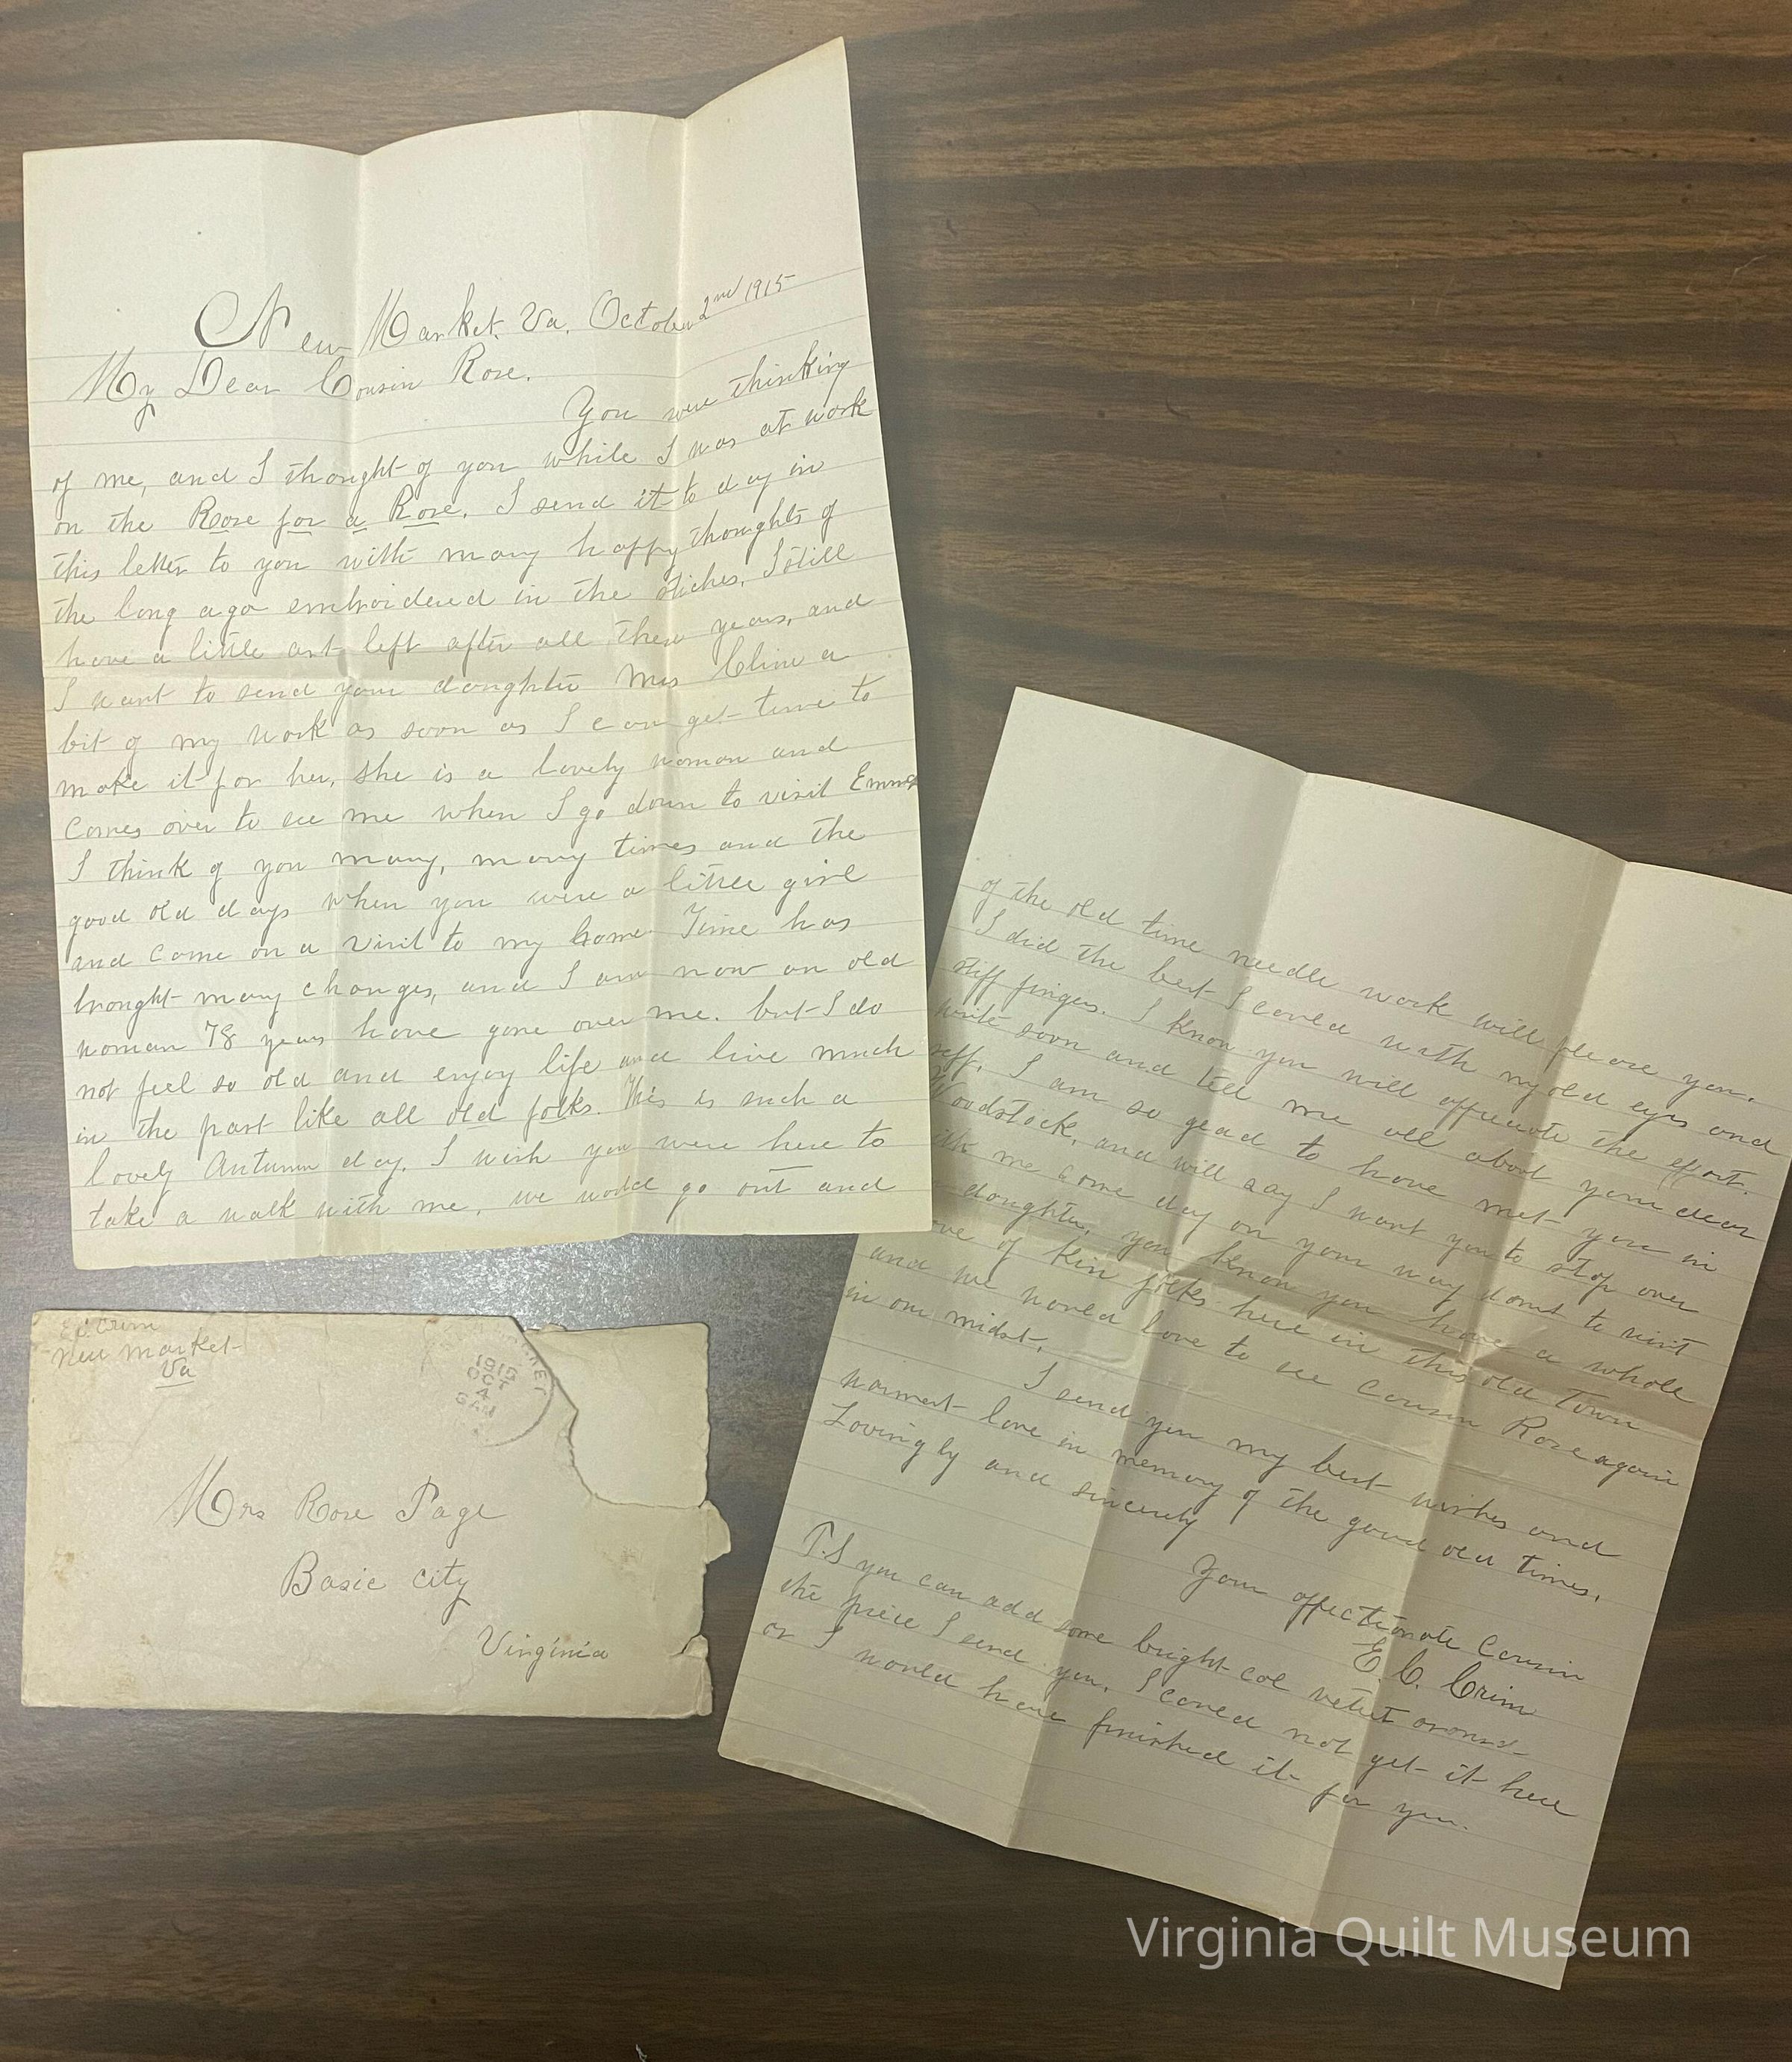 New Market. Va. October 2nd 1915
My Dear Cousin Rose.
You were thinking
of me, and I thought of you while I was at work
on the Rose for a Rose. I send it to day in
this letter to you with many happy thoughts of
the long ago embroidered in the stiches. I still
have a little art left after all these years, and
I want to send your daughter Mrs Cline a
bit of my work as soon as I can get time to
make it for her, she is a lovely woman and
comes over to see me when I go down to visit Emma
I think of you many, many times and the
good old days when you were a little girl
and came on a visit to my home. Time has
brought many changes, and I am now an old
woman 78 years have gone over me. but I do
not feel so old and enjoy life and live much
in the past like all old folks. This is such a
lovely Autumn day. I wish you were here to
take a walk with me, we would go out and
of the old time needle work will please you.
I did the best I coued with my old eyes and
stiff fingers. I know you will appreciate the effort.
write soon and tell me all about your dear
self. I am so glad to have met you in
Woodstock, and will say I want you to stop over
with me some day on your way down to visit
daughter, you know you have a whole
of Kin folks here in this old Town
and we woued love to see Cousin Rose again
in our midst.
I send you my best wishes and
warmest love in memory of the good old times.
Lovingly and sincerely
Your affectionate Cousin
E. C. Crim
P.S you can add some bright col velvet around
the piece I send you. I coued not get it here
or I woued have finished it for you.
E C Crim
New Market
Va
1915
OCT
4
Mrs Rose Page
Basic City
Virginia
Virginia Quilt Museum